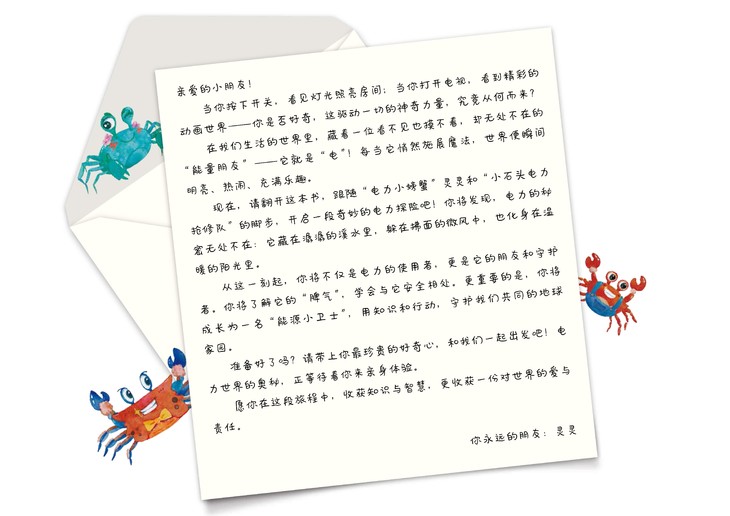 亲爱的小朋友！
当你按下开关，看见灯光照亮房间；当你打开电视，看到精彩的
动画世界——你是否好奇，这驱动一切的神奇力量，究竟从何而来？
在我们生活的世界里，藏着一位看不见也摸不着，却无处不在的
“能量朋友”——它就是“电”！每当它悄然施展魔法，世界便瞬间
明亮、热闹、充满乐趣。
现在，请翻开这本书，跟随“电力小螃蟹”灵灵和“小石头电力
抢修队”的脚步，开启一段奇妙的电力探险吧！你将发现，电力的秘
密无处不在：它藏在潺潺的溪水里，躲在拂面的微风中，也化身在温
暖的阳光里。
从这一刻起，你将不仅是电力的使用者，更是它的朋友和守护
者。你将了解它的“脾气”，学会与它安全相处。更重要的是，你将
成长为一名“能源小卫士”，用知识和行动，守护我们共同的地球
家园。
准备好了吗？请带上你最珍贵的好奇心，和我们一起出发吧！电
力世界的奥秘，正等待着你来亲身体验。
愿你在这段旅程中，收获知识与智慧，更收获一份对世界的爱与
责任。
你永远的朋友：灵灵